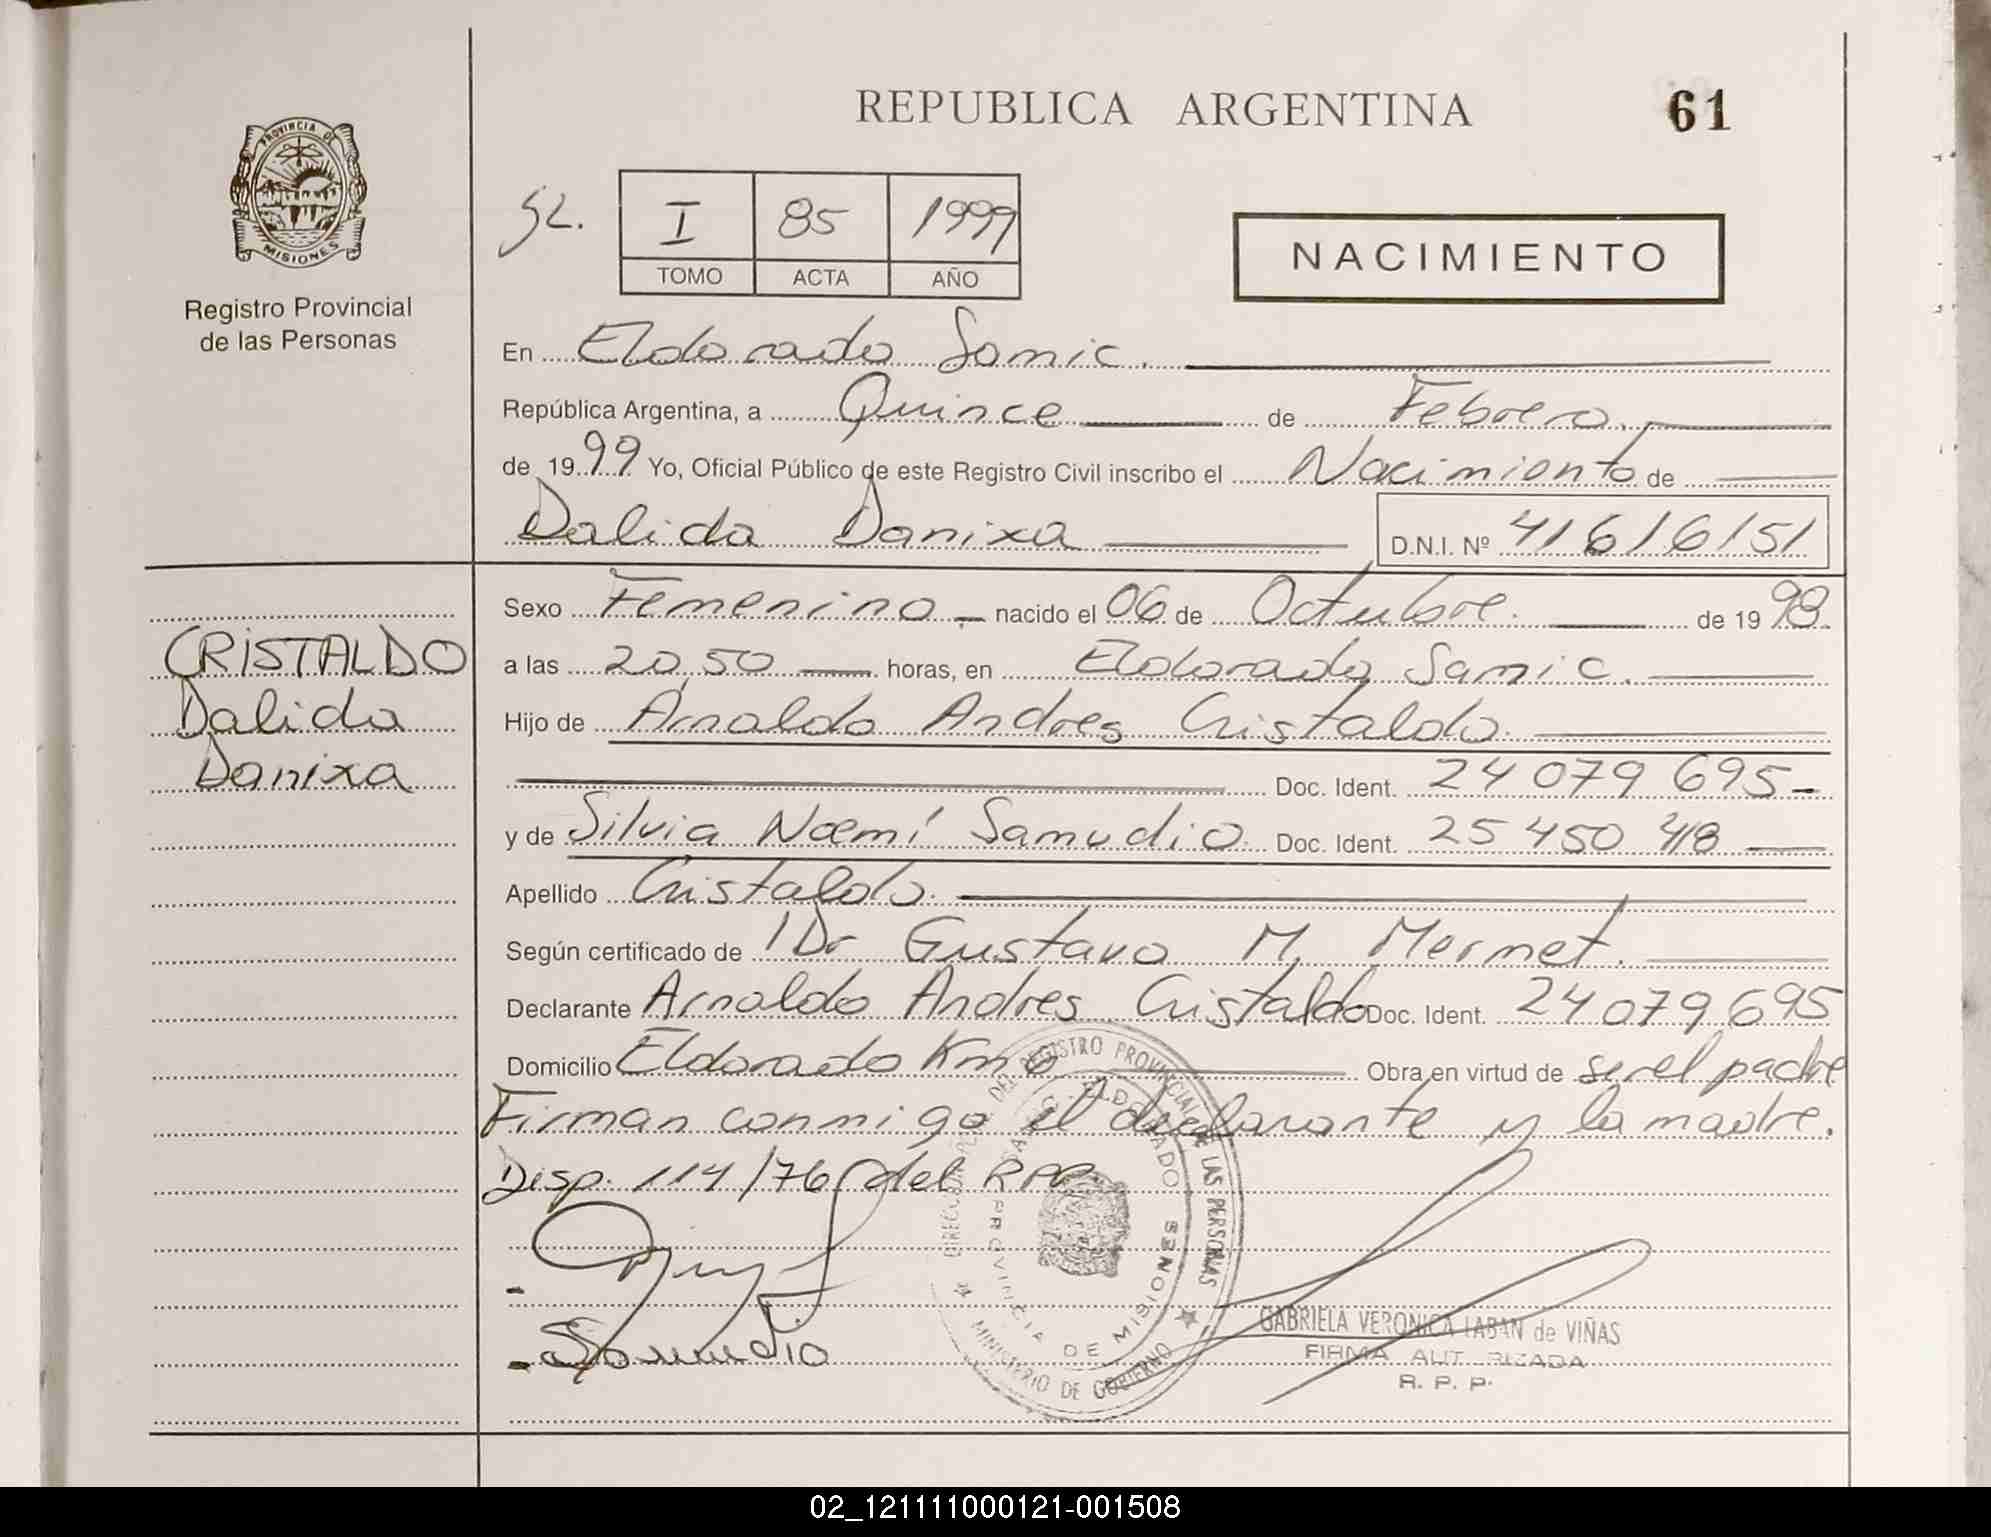 REPUBLICA ARGENTINA
61
PROVINCIA DE
MISIONES
Registro Provincial
de las Personas
I 85 1999
TOMO ACTA AÑO
NACIMIENTO
En Eldorado Samic.
República Argentina, a Quince de Febrero.
de 1999 Yo, Oficial Público de este Registro Civil inscribo el Nacimiento de
Dalida Danixa D.N.I. Nº 41616151
Sexo Femenino nacido el 06 de Octubre. de 1998.
a las 20,50 horas, en Eldorado Samic.
Hijo de Arnaldo Andres Cristaldo.
Doc. Ident. 24 079 695
y de Silvia Noemí Samudio. Doc. Ident. 25 450 418
Apellido Cristaldo.
Según certificado de Dr Gustavo M. Mermet.
Declarante Arnaldo Andres Cristaldo Doc. Ident. 24 079 695
Domicilio Eldorado Km Obra en virtud de ser el padre
Firman conmigo el declarante y la madre.
Disp. 114/76 del RPP.
CRISTALDO
Dalida
Danixa
REGISTRO PROVINCIAL DE LAS PERSONAS
MINISTERIO DE GOBIERNO
ELDORADO
PROVINCIA DE MISIONES
Samudio
GABRIELA VERONICA LABAN de VIÑAS
FIRMA AUTORIZADA
R. P. P.
02_121111000121-001508